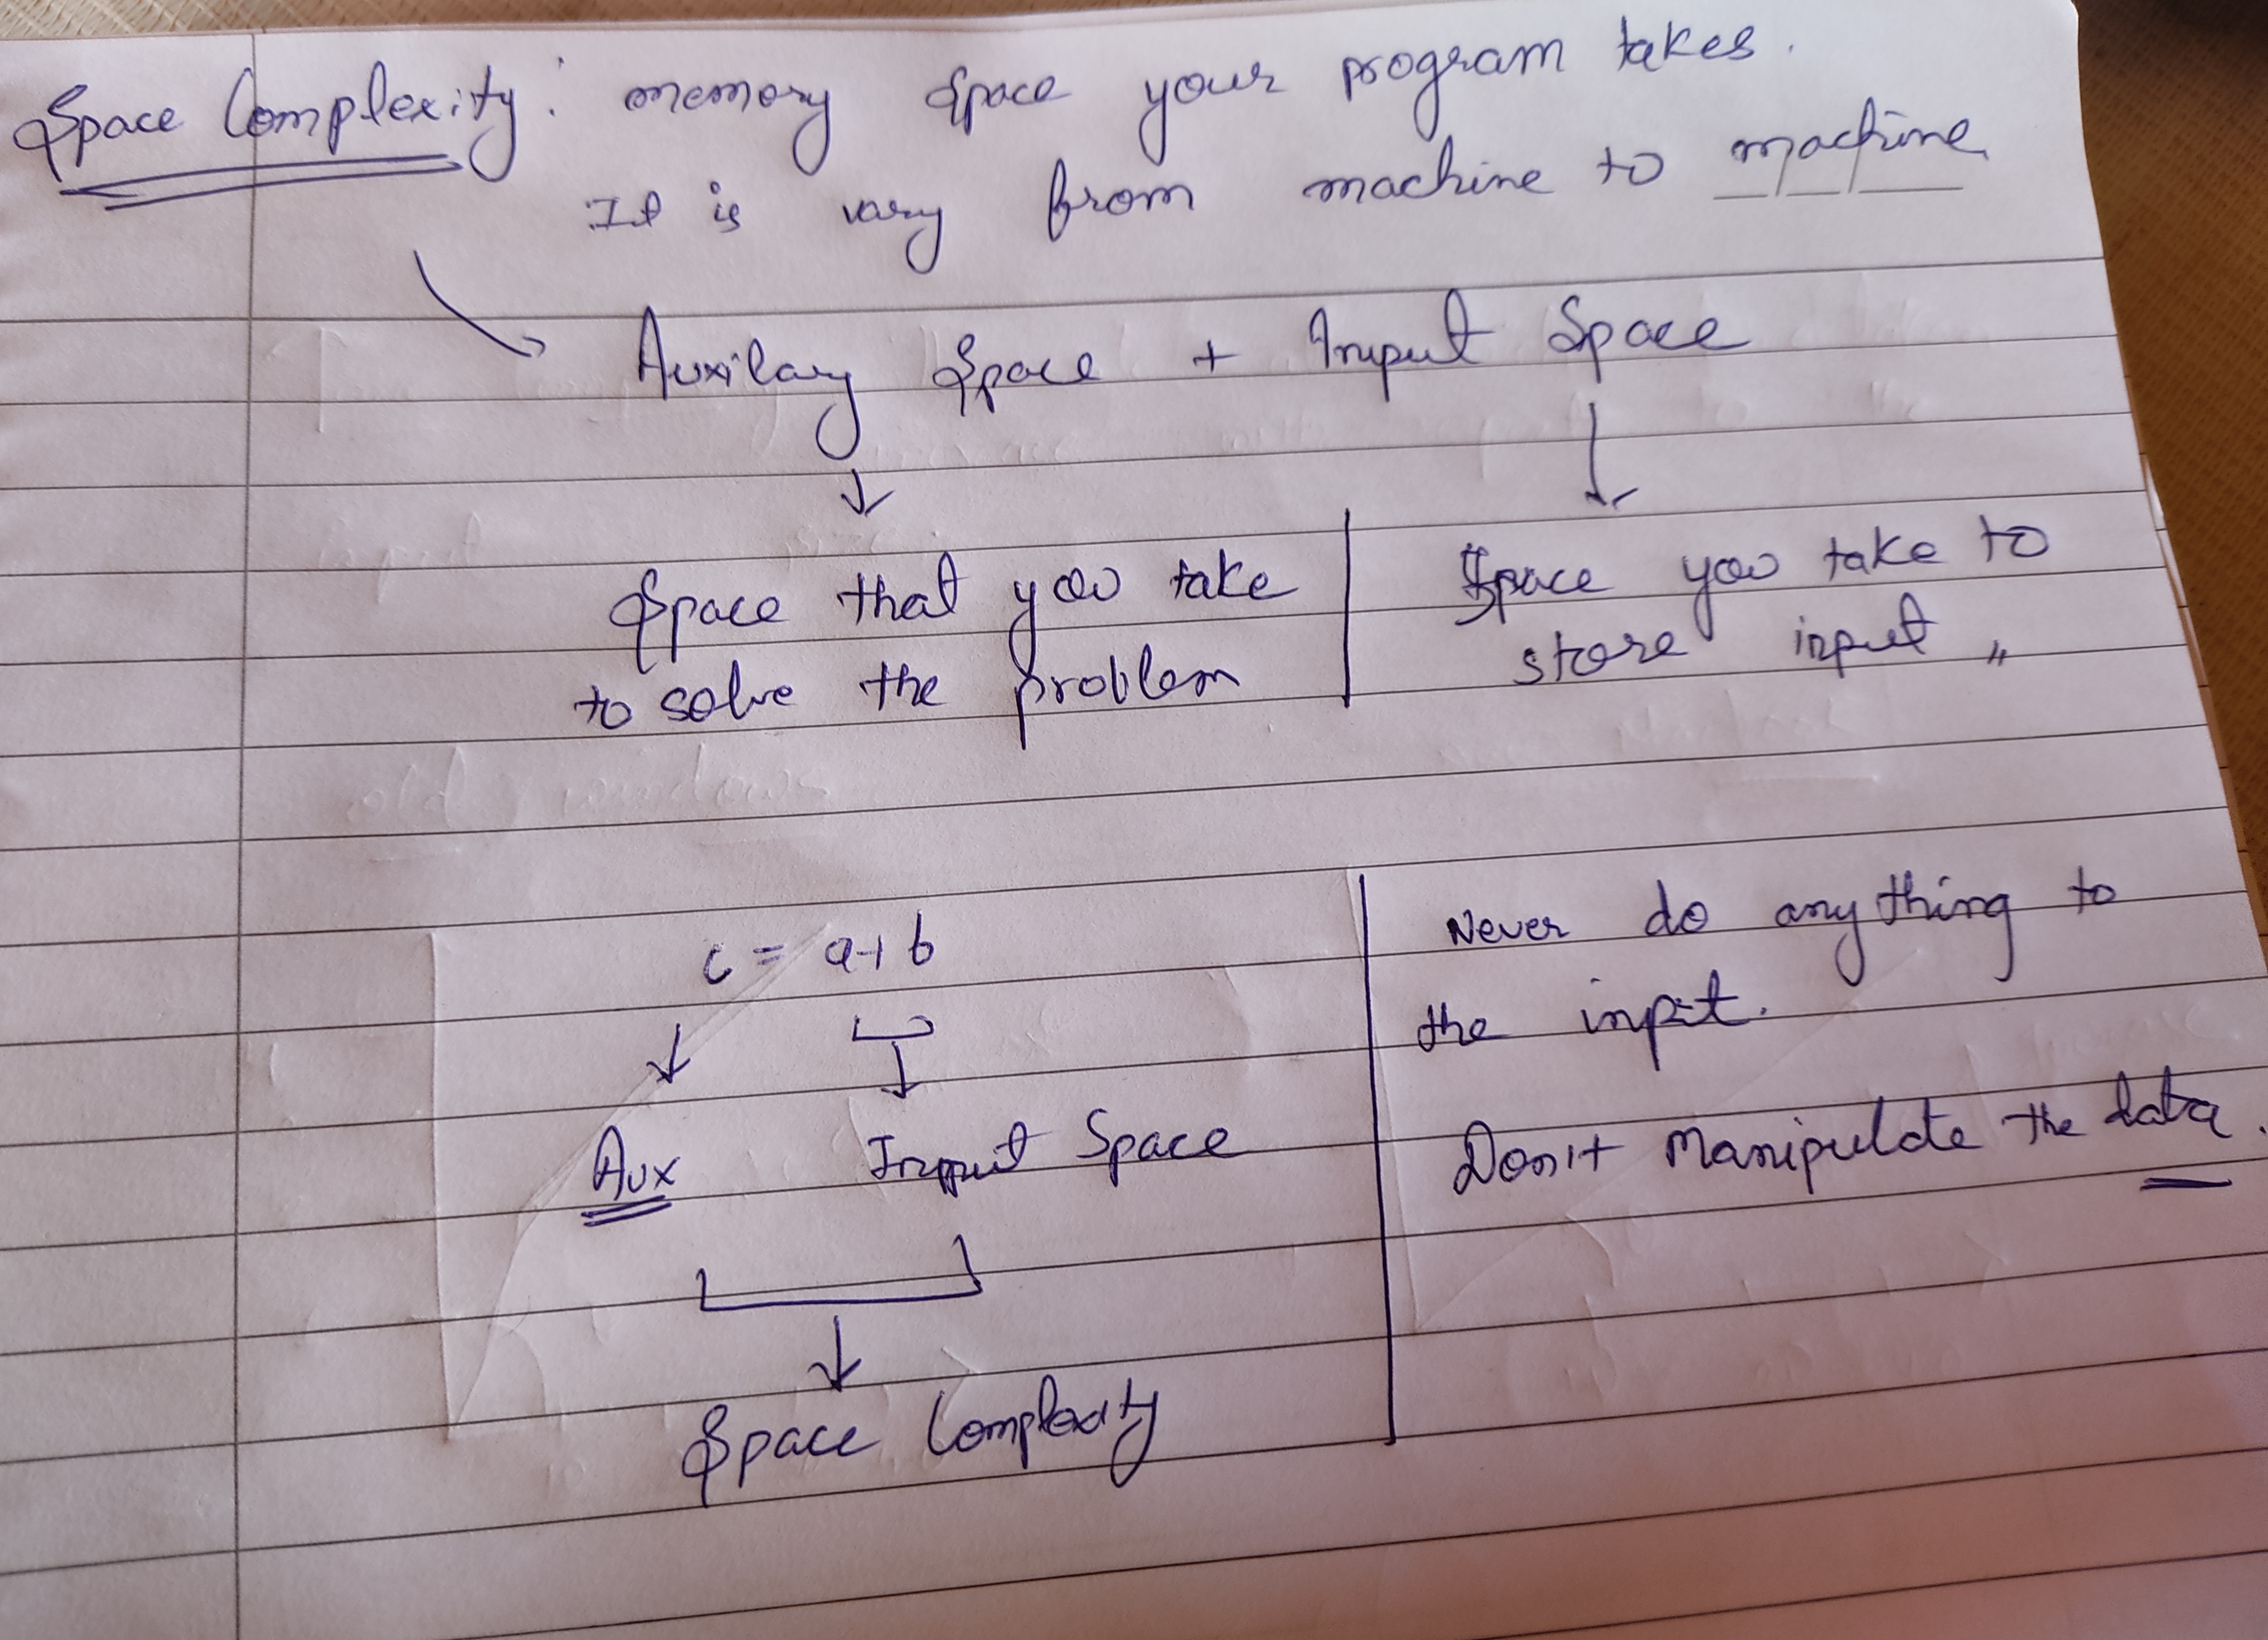 Space Complexity : memory space your program takes.
It is vary from machine to machine
Auxilary Space + Input Space
Space that you take
to solve the problem
Space you take to
store input "
c = a+b
Aux Input Space
Space Complexity
Never do anything to
the input.
Don't Manipulate the data.